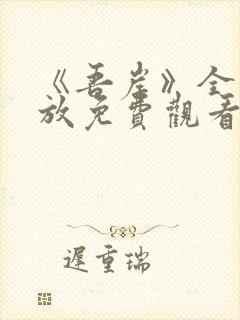 《吾岸》全
放免費觀看
遲重瑞